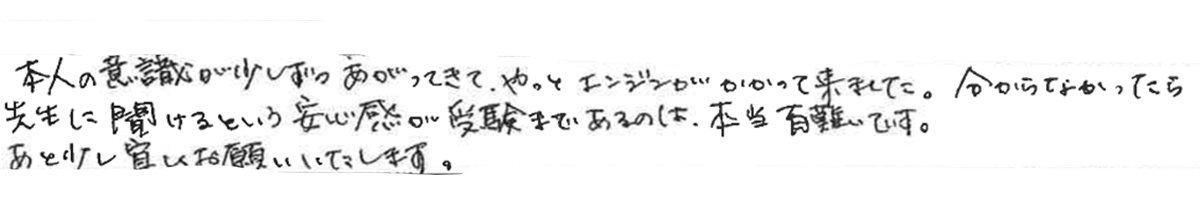 本人の意識が少しずつあがってきて、やっとエンジンがかかって来ました。分からなかったら
先生に聞けるという安心感が受験まであるのは、本当有難いです。
あと少し宜しくお願いいたします。